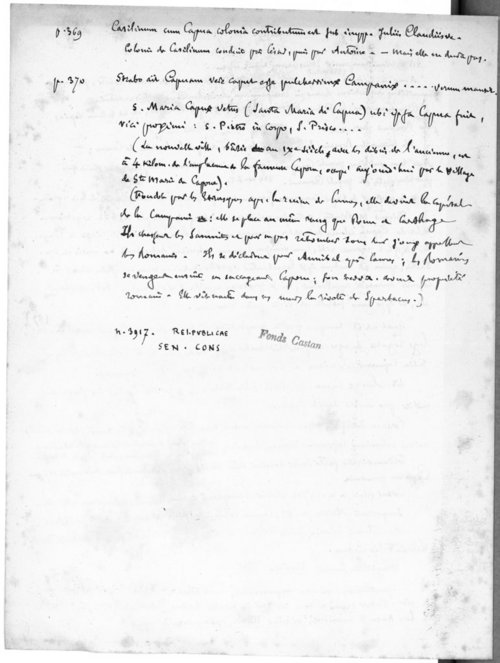 p. 369 Casilinum cum Capua colonia contributum est sub impp. Juliis Claudiisve.
Colonie de Casilinum conduite par César, puis par Antoine. — Mais elle ne dura pas.
p. 370 Strabo ait Capuam vere caput esse pulcherrimum Campaniæ ..... verum manet.
S. Maria Capuæ Vetus (Santa Maria di Capua) ubi ipsa Capua fuit,
vici proximi : S. Pietro in corpo, S. Prisco....
(La nouvelle ville, bâtie au IXe siècle, avec les débris de l'ancienne, est
à 4 kilom. de l'emplacement de la fameuse Capoue, occupé aujourd'hui par le village
de Ste Marie de Capoue).
(Fondée par les Etrusques app. elle devint la capitale
de la Campanie : elle se plaça au même rang que Rome et Carthage
Ils chargent les Samnites et pour ne pas retomber sous leur joug appellent
les Romains. Ils se déclarent pour Annibal après Cannes ; les Romains
se vengent ensuite en saccageant Capoue ; son devint propriété
romaine. Elle vit naître dans ses murs la révolte de Spartacus.)
n. 3917. REI.PUBLICAE
SEN. CONS
Fonds Castan